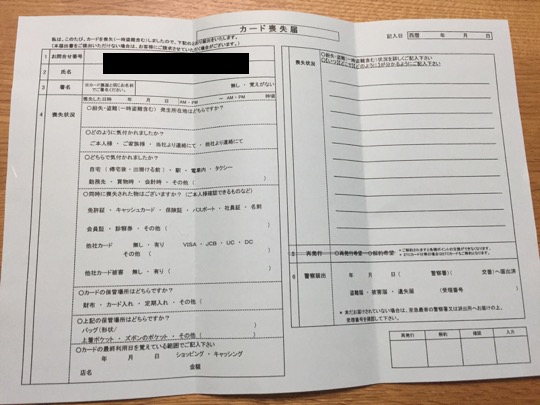 カード喪失届
記入日 西暦 年 月 日
私は、このたび、カードを喪失(一時盗難含む)しましたので、下記のとおり届出をいたします。
(本届出書をご提出いただけない場合は、お客様にご請求させていただく場合がございます。)
1 お問合せ番号
2 氏名
3 署名 ※カード裏面と同じお名前でご署名ください。 無し ・ 覚えがない
4 喪失状況
喪失した日時 年 月 日 AM・PM ～ AM・PM 時頃
○紛失・盗難(一時盗難含む) 発生所在地はどちらですか?
○どのように気付かれましたか?
ご本人様 ・ ご家族様 ・ 当社より連絡にて ・ 他社より連絡にて
○どちらで気付かれましたか?
自宅 ( 帰宅後・出掛ける前 ) ・ 駅 ・ 電車内 ・ タクシー
勤務先 ・ 買物時 ・ 会計時 ・ その他 ( )
○同時に喪失された物はございますか? (ご本人様確認できるものなど)
免許証 ・ キャッシュカード ・ 保険証 ・ パスポート ・ 社員証 ・ 名刺
会員証 ・ 診察券 ・ その他 ( )
他社カード 無し ・ 有り VISA ・ JCB ・ UC ・ DC
その他 ( )
他社カード被害 無し ・ 有り (
○カードの保管場所はどちらですか?
財布 ・ カード入れ ・ 定期入れ ・ その他 ( )
○上記の保管場所はどちらですか?
バッグ(形状/ )
上着ポケット ・ ズボンのポケット ・ その他( )
○カードの最終利用日を覚えている範囲でご記入下さい
年 月 日 ショッピング ・ キャッシング
店名 金額
喪失状況
○紛失・盗難(一時盗難含む)状況を詳しくご記入下さい
5 再発行 ○再発行希望 ○解約希望
6 警察届出 年 月 日 ( 警察署)( 交番)へ届出済
盗難届 ・ 被害届 ・ 遺失届 (受理番号 )
＊ 未だお届けされていない場合は、至急最寄の警察署又は派出所へお届けの上、
受理番号を確認して下さい。
再発行 解約 確認 入力